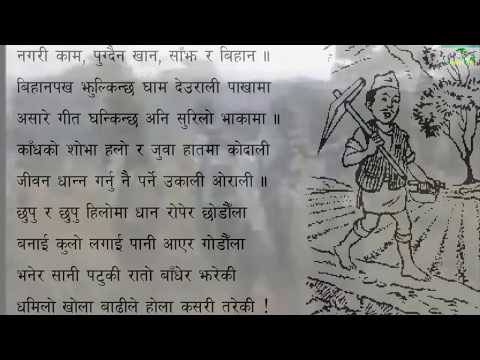 नगरी काम, पुग्दैन खान, साँझ र बिहान ॥
बिहानपख झुल्किन्छ घाम देउराली पाखामा
असारे गीत घन्किन्छ अनि सुरिलो भाकामा ॥
काँधको शोभा हलो र जुवा हातमा कोदाली
जीवन धान्न गर्नु नै पर्ने उकाली ओराली ॥
छुपु र छुपु हिलोमा धान रोपेर छोडौँला
बनाई कुलो लगाई पानी आएर गोडौँला
भनेर सानी पटुकी रातो बाँधेर झरेकी
धमिलो खोला बाढीले होला कसरी तरेकी !